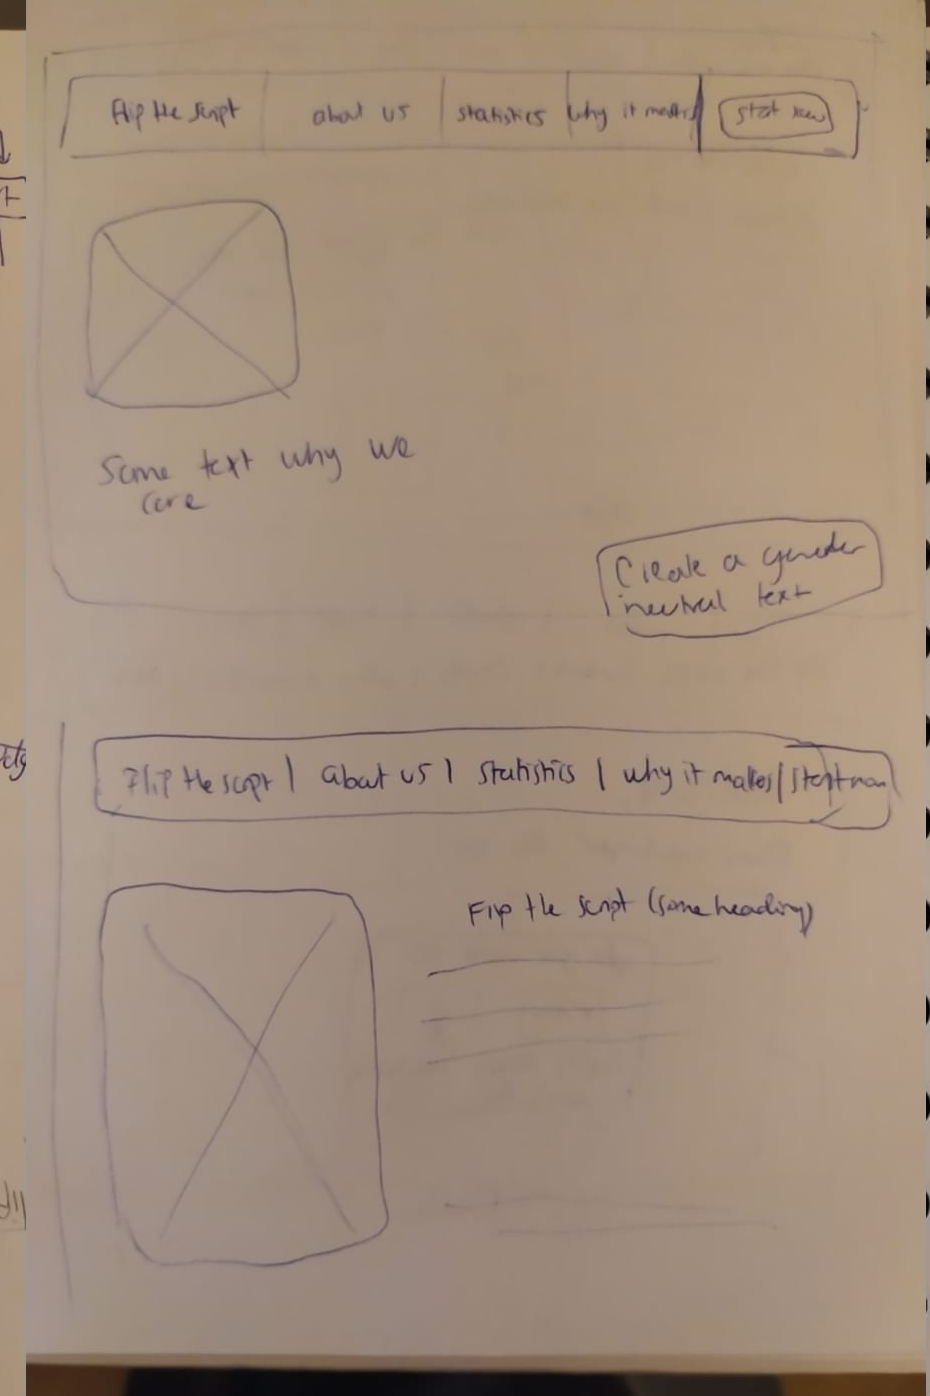 Flip the script about us statistics why it matters start now
Some text why we
care
Create a gender
neutral text
Flip the script | about us | statistics | why it mattes | start now
Flip the script (some heading)